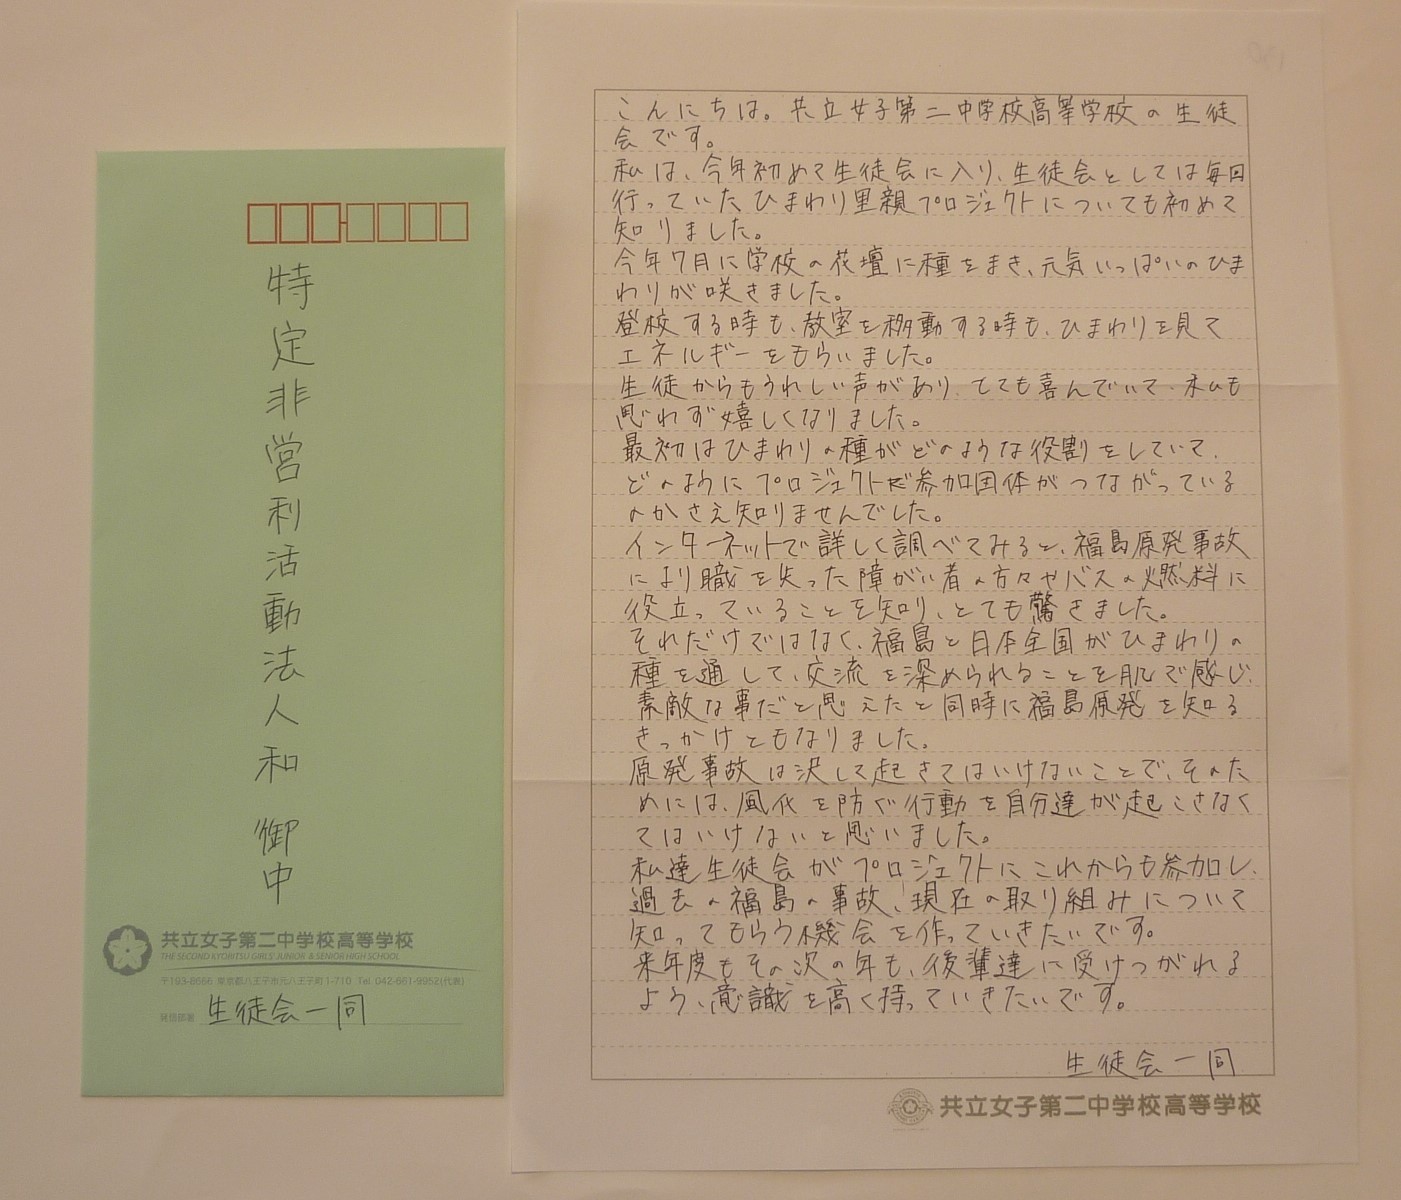 特定非営利活動法人和 御中
共立女子第二中学校高等学校
THE SECOND KYORITSU GIRLS' JUNIOR & SENIOR HIGH SCHOOL
〒193-8666 東京都八王子市元八王子町1-710 Tel 042-661-9952(代表)
発信部署 生徒会一同
こんにちは。共立女子第二中学校高等学校の生徒
会です。
私は、今年初めて生徒会に入り、生徒会としては毎回
行っていたひまわり里親プロジェクトについても初めて
知りました。
今年7月に学校の花壇に種をまき、元気いっぱいのひま
わりが咲きました。
登校する時も、教室を移動する時も、ひまわりを見て
エネルギーをもらいました。
生徒からもうれしい声があり、とても喜んでいて、私も
思わず嬉しくなりました。
最初はひまわりの種がどのような役割をしていて、
どのようにプロジェクトが参加団体がつながっている
のかさえ知りませんでした。
インターネットで詳しく調べてみると、福島原発事故
により職を失った障がい者の方々やバスの燃料に
役立っていることを知り、とても驚きました。
それだけではなく、福島と日本全国がひまわりの
種を通して、交流を深められることを肌で感じ、
素敵な事だと思えたと同時に福島原発を知る
きっかけともなりました。
原発事故は決して起きてはいけないことで、そのた
めには、風化を防ぐ行動を自分達が起こさなく
てはいけないと思いました。
私達生徒会がプロジェクトにこれからも参加し、
過去の福島の事故、現在の取り組みについて
知ってもらう機会を作っていきたいです。
来年度もその次の年も、後輩達に受けつがれる
よう、意識を高く持っていきたいです。
生徒会一同
共立女子第二中学校高等学校